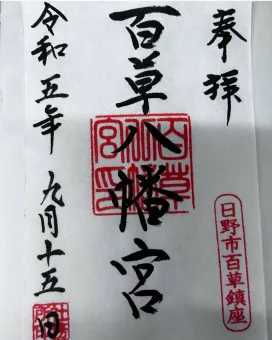 奉拝
百草八幡宮
令和五年九月十五日
日野市百草鎮座